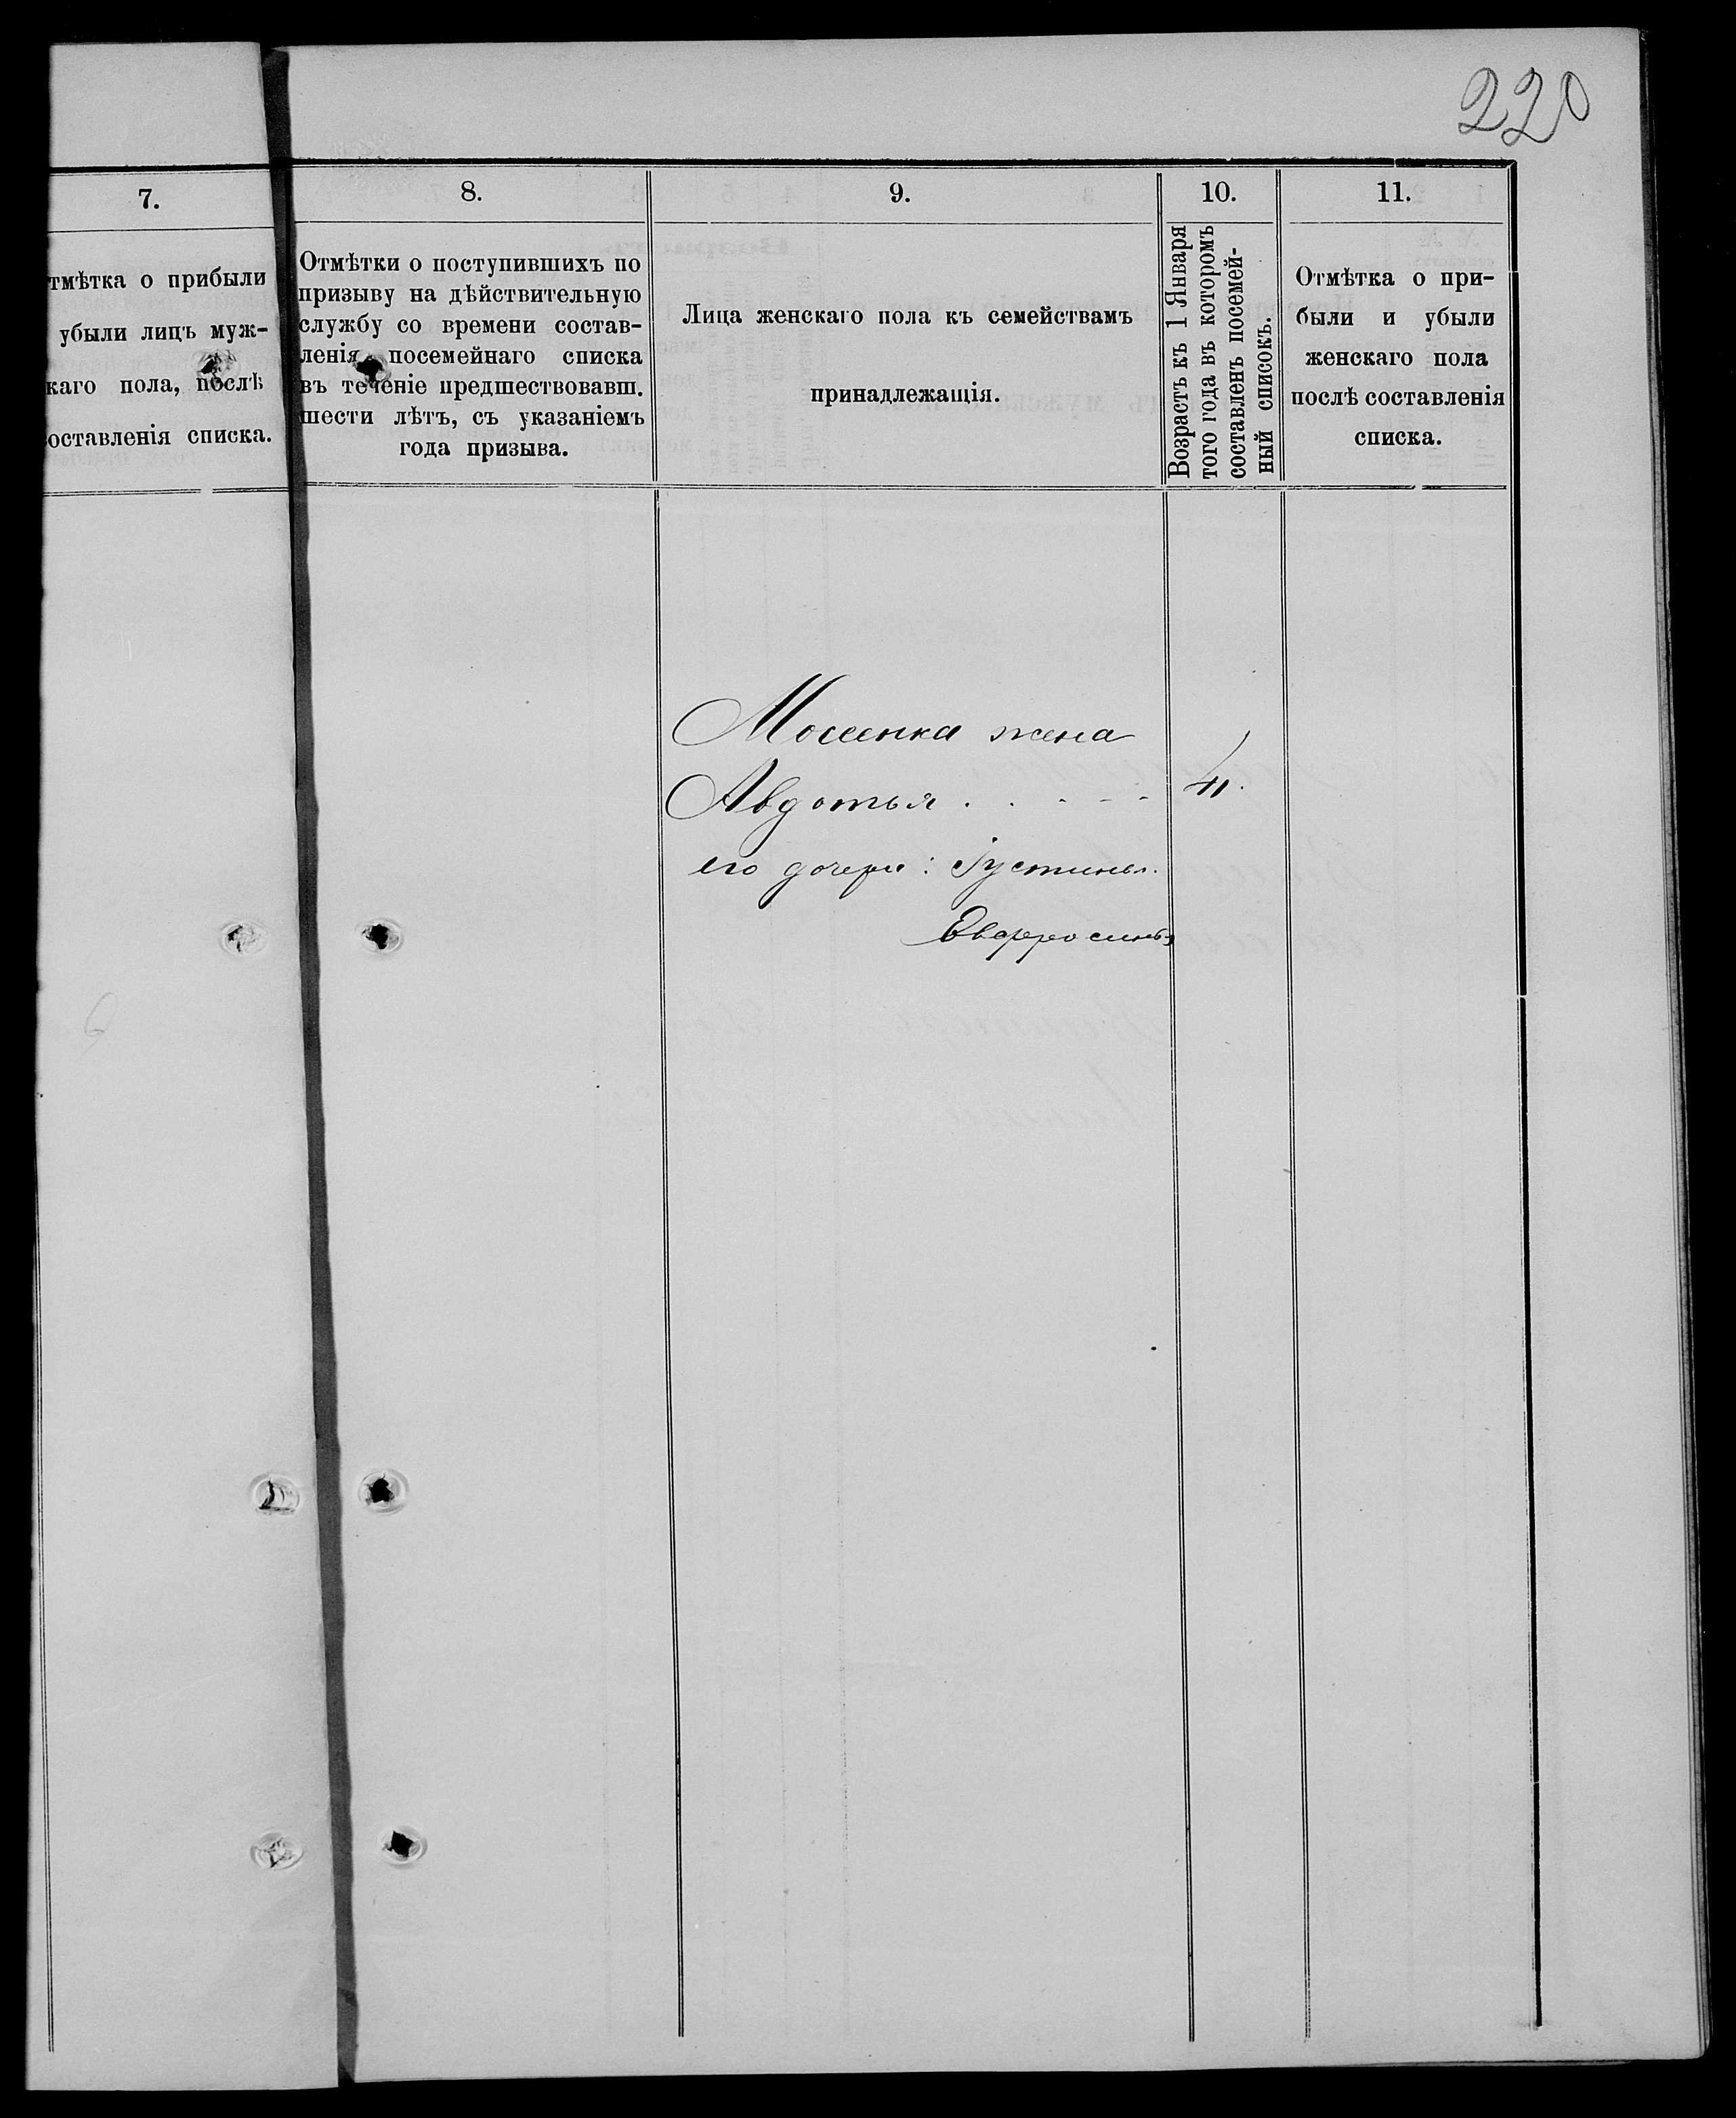 220
7.
тмѣтка о прибыли
убыли лицъ муж-
каго пола, послѣ
оставленія списка.
8.
Отмѣтки о поступившихъ по
призыву на дѣйствительную
службу со времени состав-
ленія посемейнаго списка
въ теченіе предшествовавш.
шести лѣтъ, съ указаніемъ
года призыва.
9.
Лица женскаго пола къ семействамъ
принадлежащія.
10.
Возрастъ къ 1 Января
того года въ которомъ
составленъ посемей-
ный списокъ.
11.
Отмѣтка о при-
были и убыли
женскаго пола
послѣ составленія
списка.
жена
Авдотья . . - - -
его дочери: Іустинья.
Евфросинья